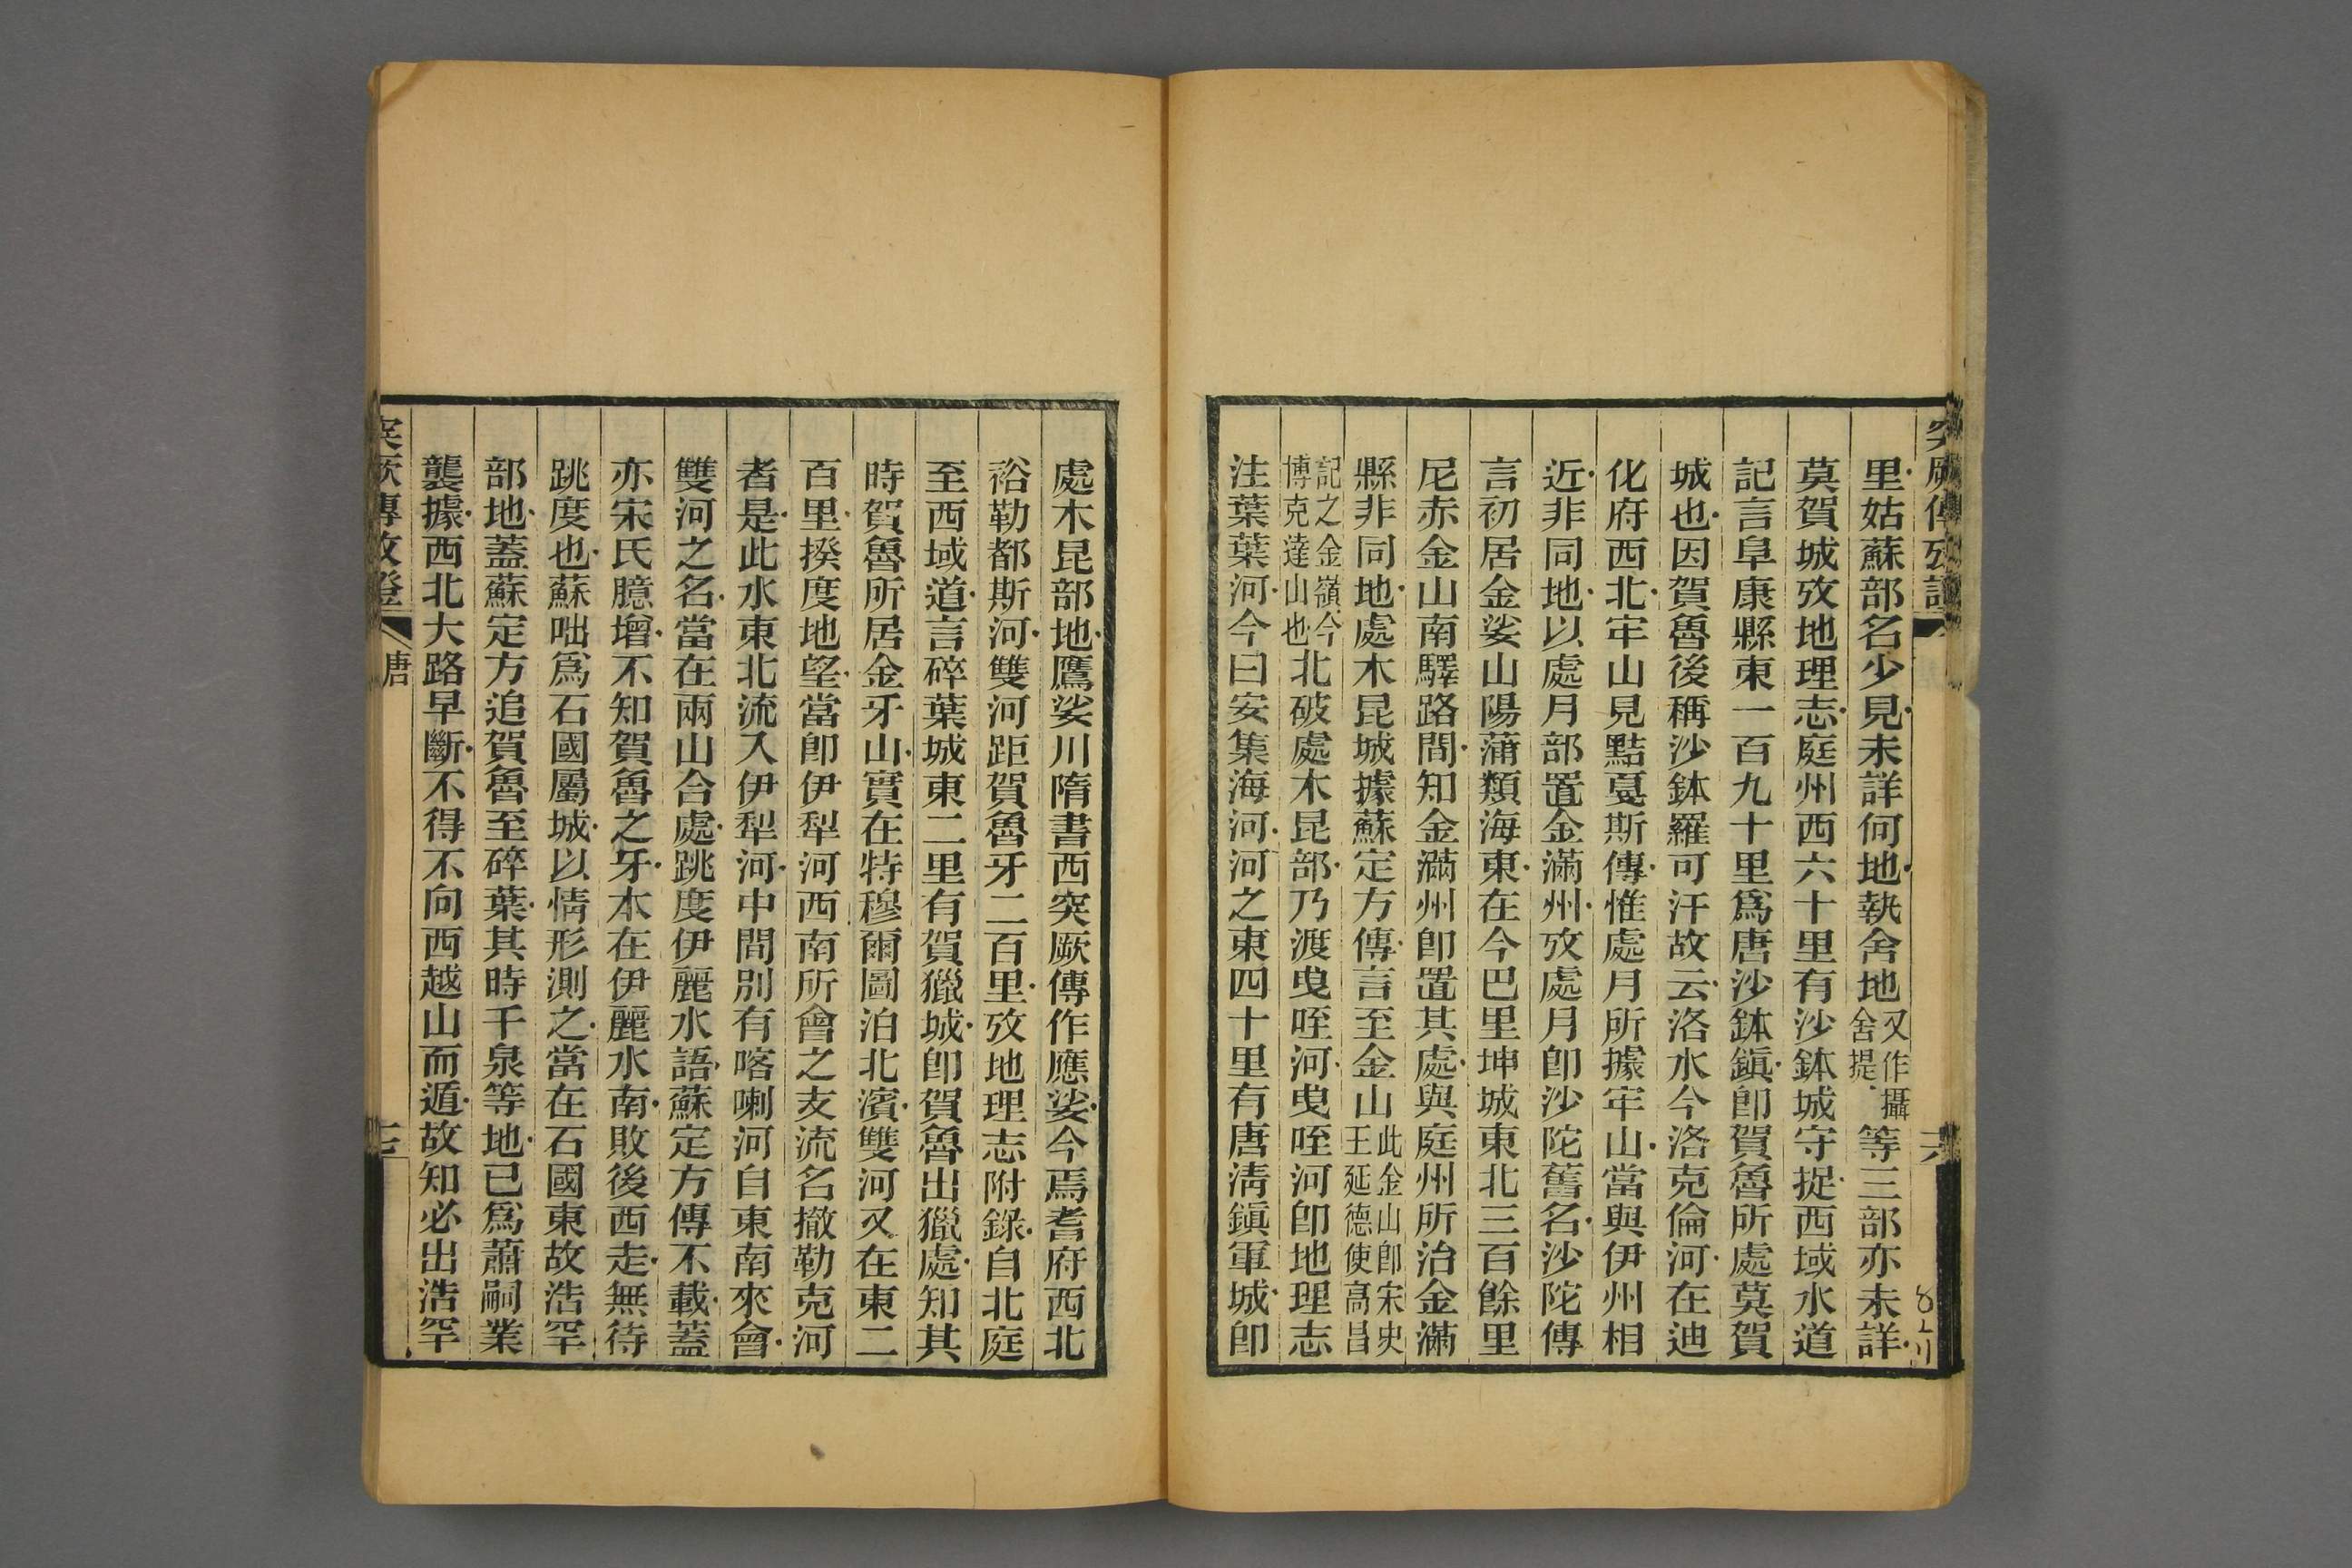 突厥傳攷證
六
里姑蘇部名少見未詳何地執舍地又作攝舍提等三部亦未詳
莫賀城攷地理志庭州西六十里有沙鉢城守捉西域水道
記言阜康縣東一百九十里爲唐沙鉢鎭卽賀魯所處莫賀
城也因賀魯後稱沙鉢羅可汗故云洛水今洛克倫河在迪
化府西北牢山見黠戛斯傳惟處月所據牢山當與伊州相
近非同地以處月部置金滿州攷處月卽沙陀舊名沙陀傳
言初居金娑山陽蒲類海東在今巴里坤城東北三百餘里
尼赤金山南驛路問知金滿州卽置其處與庭州所治金滿
縣非同地處木昆城據蘇定方傳言至金山此金山卽宋史王延德使高昌
記之金嶺今博克達山也北破處木昆部乃渡曳咥河曳咥河卽地理志
注葉葉河今曰安集海河河之東四十里有唐淸鎭軍城卽
處木昆部地鷹娑川隋書西突厥傳作應娑今焉耆府西北
裕勒都斯河雙河距賀魯牙二百里攷地理志附錄自北庭
至西域道言碎葉城東二里有賀獵城卽賀魯出獵處知其
時賀魯所居金牙山實在特穆爾圖泊北濱雙河又在東二
百里揆度地望當卽伊犁河西南所會之支流名撤勒克河
者是此水東北流入伊犁河中間別有喀喇河自東南來會
雙河之名當在兩山合處跳度伊麗水語蘇定方傳不載蓋
亦宋氏臆增不知賀魯之牙本在伊麗水南敗後西走無待
跳度也蘇咄爲石國屬城以情形測之當在石國東故浩罕
部地蓋蘇定方追賀魯至碎葉其時千泉等地已爲蕭嗣業
襲據西北大路早斷不得不向西越山而遁故知必出浩罕
突厥傳攷證
唐
七